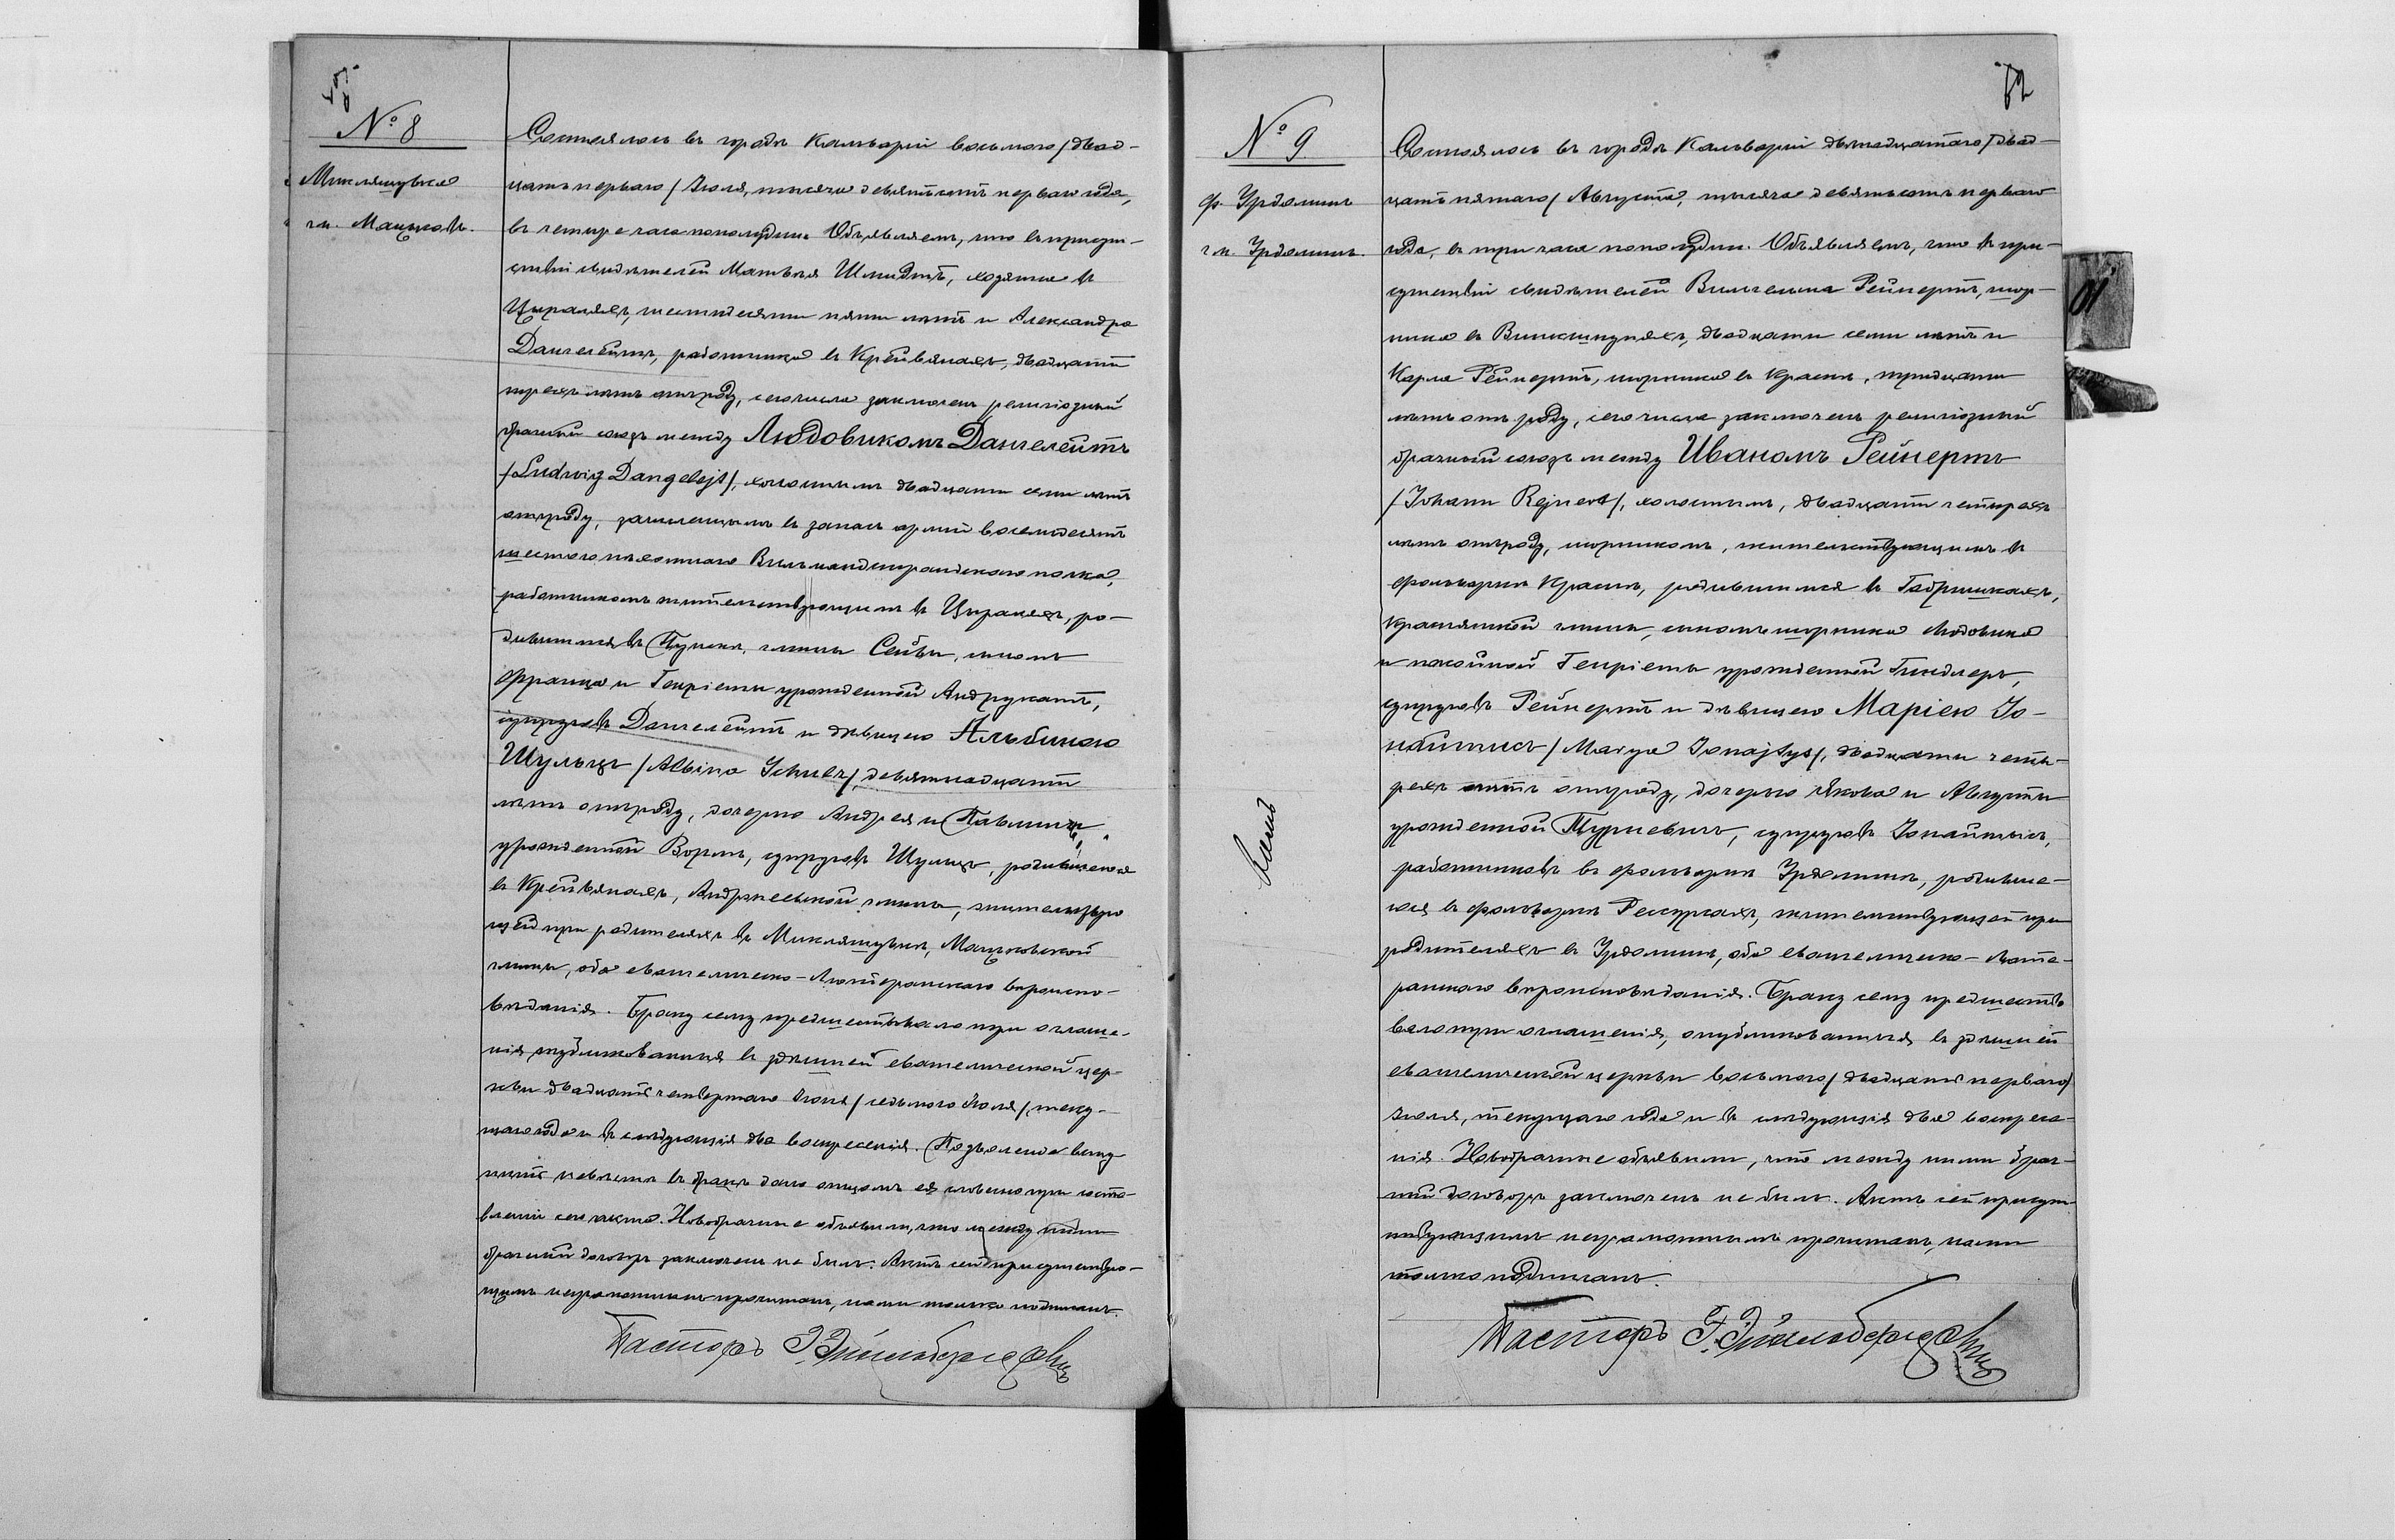 № 8
Миклашувка
гм. Мацковъ.
Состоялось въ городѣ Кальваріи восьмого /двад-
цать перваго/ Іюля, тысяча девятьсотъ перваго года,
въ четыре часа пополудни. Объявляемъ, что въ присут-
ствіи свидѣтелей Матвѣя Шмидтъ, хозяина въ
Цыраляхъ, шестидесяти пяти лѣтъ и Александра
Дангелейтъ, работника въ Крейвянахъ, двадцати
трехъ лѣтъ отъ роду, сего числа заключенъ религіозный
брачный союзъ между Людовикомъ Дангелейтъ
/Ludwig Dangelejt/, холостымъ двадцати семи лѣтъ
отъ роду, зачисленнымъ въ запасъ арміи восемьдесятъ
шестого пѣхотнаго Вильманстрандскаго полка,
работникомъ жительствующимъ въ Цыраляхъ, ро-
дившимся въ Пунскѣ, гмины Сейвы, сыномъ
Франца и Генріеты урожденной Андрукатъ,
супруговъ Дангелейтъ и дѣвицею Альбиною
Шульцъ /Albina Schulz/, девятнадцати
лѣтъ отъ роду, дочерью Андрея и Павлины
урожденной Вормъ, супруговъ Шульцъ, родившеюся
въ Крейвянахъ, Андржеевской гмины, жительствую
щей при родителяхъ въ Миклашувкѣ, Мацковской
гмины, оба евангелическо-Лютеранскаго вѣроиспо-
вѣданія. Браку сему предшествовало три оглаше-
нія, публикованныя въ здѣшней евангелической цер-
кви двадцать четвертаго Іюня /седьмого Іюля/, теку-
щаго года и въ слѣдующія два воскресенія. Позволеніе всту-
пить невѣстѣ въ бракъ дано отцомъ ея словесно при соста-
вленіи сего акта. Новобрачные объявили, что между ними
брачный договоръ заключенъ не былъ. Актъ сей присутствую-
щимъ неграмотнымъ прочитанъ, нами только подписанъ.
Пасторъ
№ 9
ф. Урдоминъ
гм. Урдоминъ.
Состоялось въ городѣ Кальваріи двѣнадцатаго /двад-
цать пятаго/ Августа, тысяча девятьсотъ перваго
года, въ три часа пополудни. Объявляемъ, что въ при-
сутствіи свидѣтелей Вильгельма Рейнертъ, шор-
ника въ Винкшнупяхъ, двадцати семи лѣтъ и
Карла Рейнертъ, шорника въ Краснѣ, тридцати
лѣтъ отъ роду, сего числа заключенъ религіозный
брачный союзъ между Иваномъ Рейнертъ
/Johann Rejnert/, холостымъ, двадцати четырехъ
лѣтъ отъ роду, шорникомъ, жительствующимъ въ
фольваркѣ Краснѣ, родившимся въ Гобришкахъ,
Краснянской гмины, сыномъ шорника Людовика
и покойной Генріеты урожденной Гиндлеръ,
супруговъ Рейнертъ и дѣвицею Маріею Іо-
найтисъ /Marya Jonajtys/, двадцати четы-
рехъ лѣтъ отъ роду, дочерью Якова и Августы
урожденной Пурневичъ, супруговъ Іонайтисъ,
работниковъ въ фольваркѣ Урдоминѣ, родивше-
юся въ фольваркѣ жительствующей при
родителяхъ въ Урдоминѣ, оба евангелическо-Люте-
ранскаго вѣроисповѣданія. Браку сему предшество
вало три оглашенія, опубликованныя въ здѣшней
евангелической церкви восьмого /двадцать перваго/
Іюля, текущаго года и въ слѣдующія два воскресе-
нія. Новобрачные объявили, что между ними брач-
ный договоръ заключенъ не былъ. Актъ сей присут-
ствующимъ неграмотнымъ прочитанъ, нами
только подписанъ.
Пасторъ